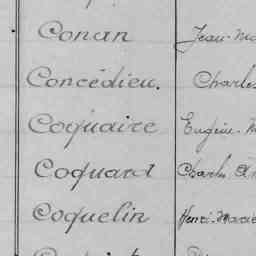 Conan Jean-Ma
Concédieu. Charles
Coquaire Eugène-M
Coquard Charles An
Coquelin Henri-Marie